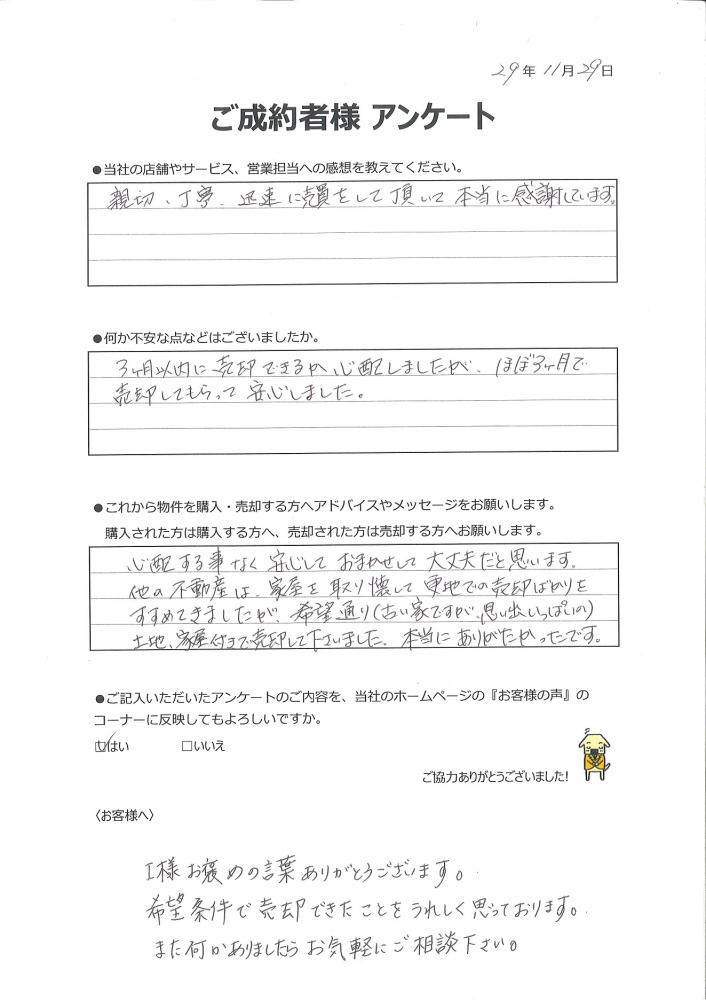 29年11月29日
ご成約者様 アンケート
●当社の店舗やサービス、営業担当への感想を教えてください。
親切、丁寧、迅速に売買をして頂いて本当に感謝しています。
●何か不安な点などはございましたか。
3ヶ月以内に売却できるか心配しましたが、ほぼ3ヶ月で
売却してもらって安心しました。
●これから物件を購入・売却する方へアドバイスやメッセージをお願いします。
購入された方は購入する方へ、売却された方は売却する方へお願いします。
心配する事なく安心しておまかせして大丈夫だと思います。
他の不動産は、家屋を取り懐して更地での売却ばかりを
すすめてきましたが、希望通り(古い家ですが、思い出いっぱいの)
土地、家屋付きで売却して下さいました。本当にありがたかったです。
●ご記入いただいたアンケートのご内容を、当社のホームページの『お客様の声』の
コーナーに反映してもよろしいですか。
☑はい □いいえ
ご協力ありがとうございました！
〈お客様へ〉
I様お褒めの言葉ありがとうございます。
希望条件で売却できたことをうれしく思っております。
また何かありましたらお気軽にご相談下さい。